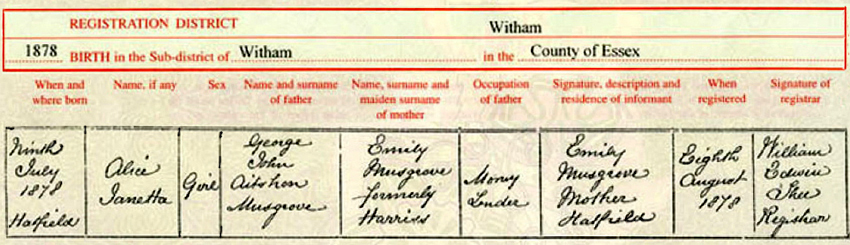 REGISTRATION DISTRICT Witham
1878 BIRTH in the Sub-district of Witham in the County of Essex
When and where born
Name, if any
Sex
Name and surname of father
Name, surname and maiden surname of mother
Occupation of father
Signature, description and residence of informant
When registered
Signature of registrar
Ninth
July
1878
Hatfield
Alice
Janetta
Girl
George
John
Musgrove
Emily
Musgrove
formerly
Harriss
Money
Lender
Emily
Musgrove
Mother
Hatfield
Eighth
August
1878
William
Edwin
Registrar